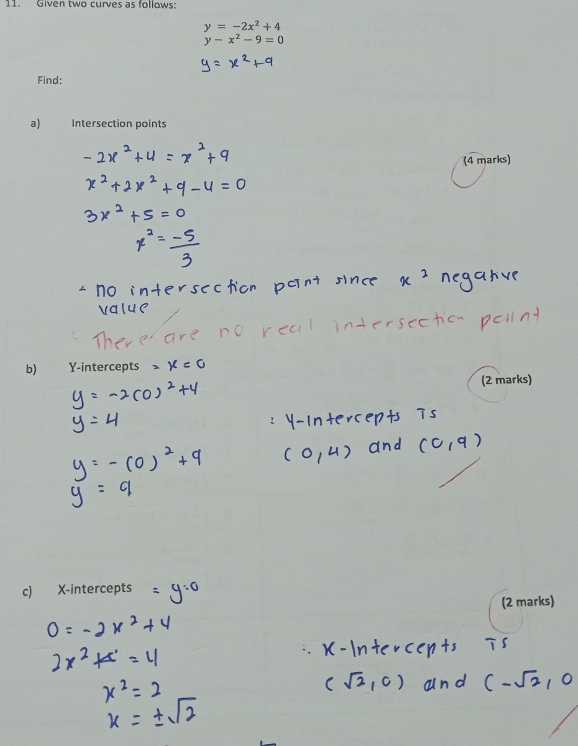 11. Given two curves as follows:
y = -2x² + 4
y - x² - 9 = 0
y = x² + 9
Find:
a) Intersection points
-2x² + 4 = x² + 9
(4 marks)
x² + 2x² + 9 - 4 = 0
3x² + 5 = 0
x² = -5/3
∴ no intersection point since x² negative
value
∴ There are no real intersection point
b) Y-intercepts = x = 0
(2 marks)
y = -2(0)² + 4
y = 4
∴ Y-intercepts is
(0,4) and (0,9)
y = -(0)² + 9
y = 9
c) X-intercepts = y=0
(2 marks)
0 = -2x² + 4
2x² = 4
∴ x-intercepts is
x² = 2
(√2, 0) and (-√2, 0
x = ±√2